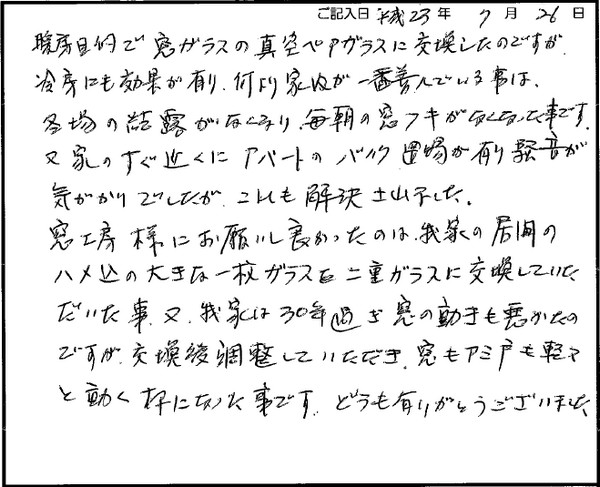 ご記入日 平成23年 7月 26日
暖房目的で窓ガラスの真空ペアガラスに交換したのですが
冷房にも効果が有り、何より家内が一番喜んでいる事は、
冬場の結露がなくなり、毎朝の窓フキがなくなった事です。
又家のすぐ近くにアパートのバイク置場が有り騒音が
気がかりでしたが、これも解決出来ました。
窓工房様にお願いし良かったのは、我家の居間の
ハメ込の大きな一枚ガラスを二重ガラスに交換していた
だいた事、又、我家は30年過ぎ窓の動きも悪かったの
ですが、交換後調整していただき、窓もアミ戸も軽々
と動く様になった事です。どうも有りがとうございました